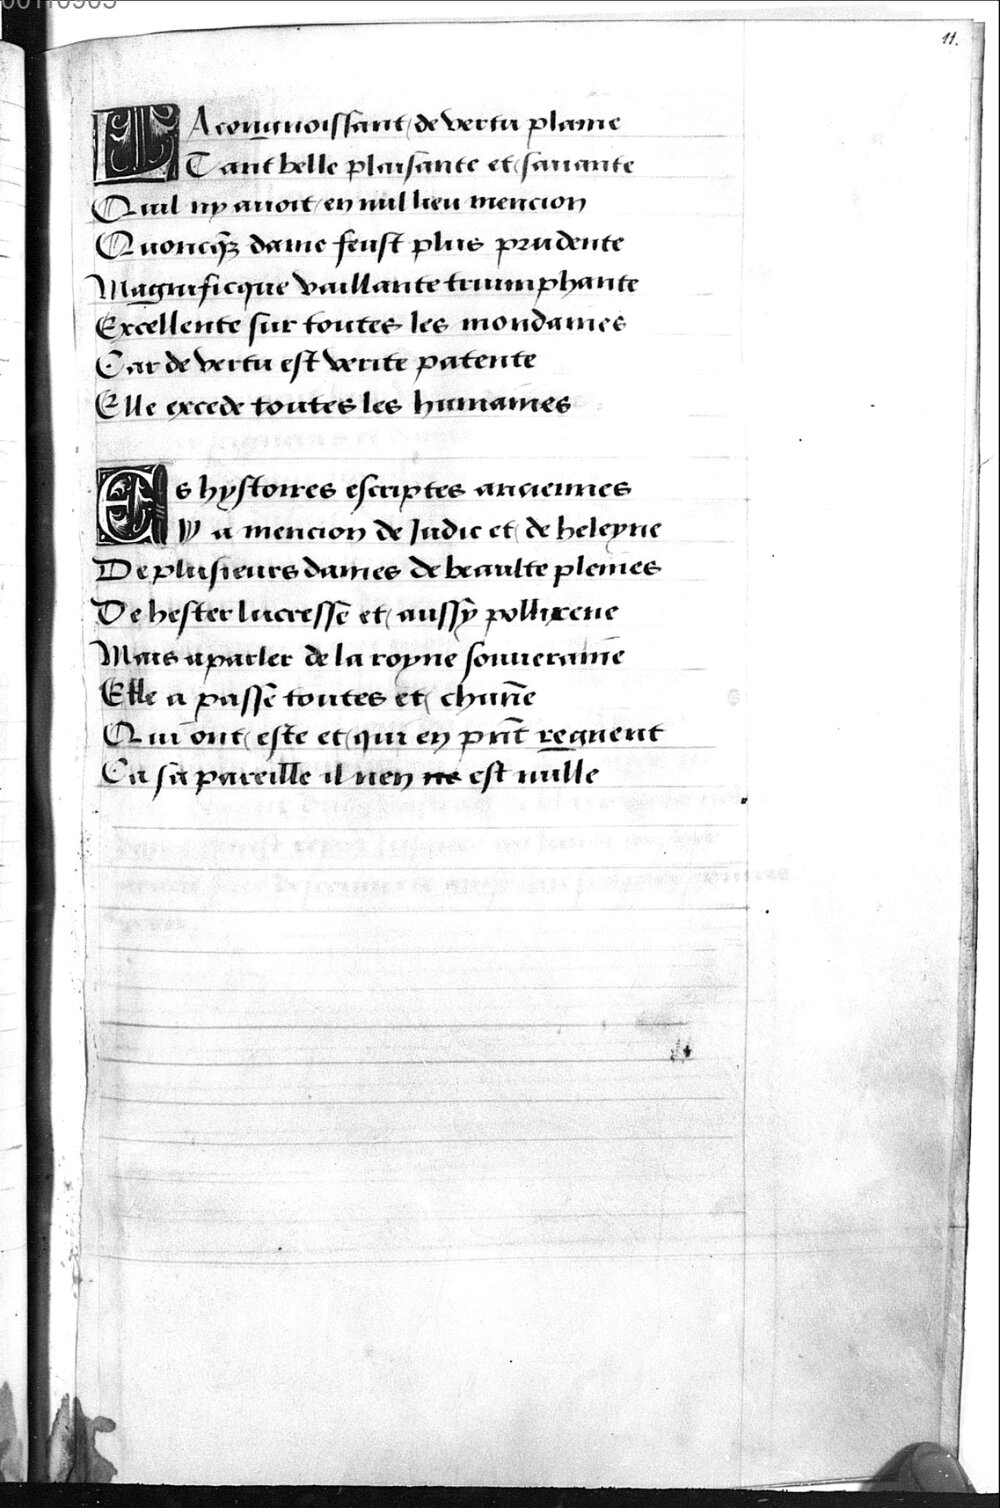 00110903
11.
LA congnoissant de vertu plaine
Tant belle plaisante et sauante
Quil ny auoit en nul lieu mencion
Quoncq̃z dame feust plus prudente
Magnificque vaillante triumphante
Excellente sur toutes les mondaines
Car de vertu est verite patente
Elle excede toutes les humaines
Es hystoires escriptes anciennes
Y a mencion de Judic et de heleyne
De plusieurs dames de beaulte pleines
De hester lucresse et aussy pollixene
Mais a parler de la royne souueraine
Elle a passe toutes et chũne
Qui ont este et qui en pñt regnent
Ca sa pareille il nen est nulle